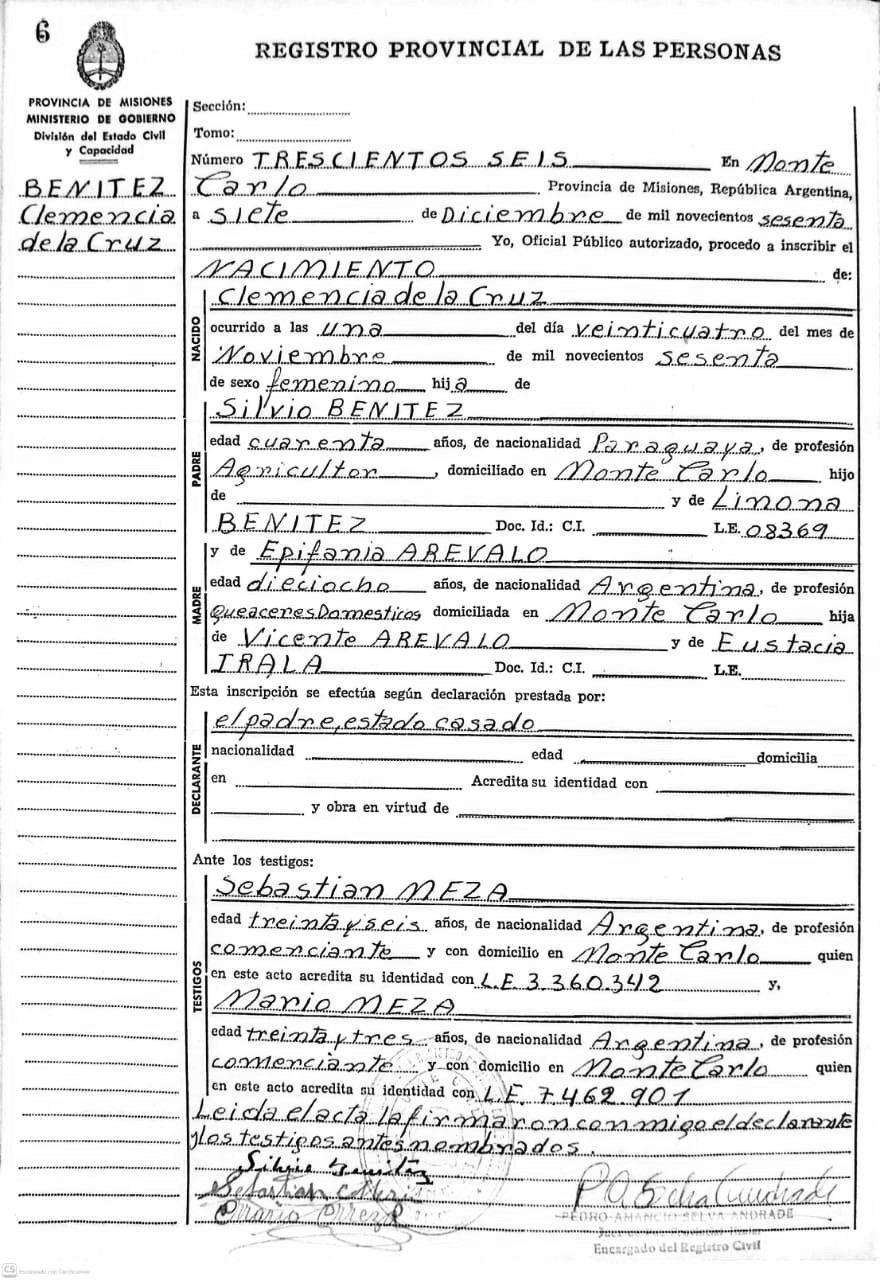 6
REGISTRO PROVINCIAL DE LAS PERSONAS
PROVINCIA DE MISIONES
MINISTERIO DE GOBIERNO
División del Estado Civil
y Capacidad
BENITEZ
Clemencia
de la Cruz
Sección:
Tomo:
Número TRESCIENTOS SEIS En Monte
Carlo Provincia de Misiones, República Argentina,
a siete de Diciembre de mil novecientos sesenta
Yo, Oficial Público autorizado, procedo a inscribir el
NACIMIENTO de:
NACIDO
Clemencia de la Cruz
ocurrido a las una del día veinticuatro del mes de
Noviembre de mil novecientos sesenta
de sexo femenino hija de
PADRE
Silvio BENITEZ
edad cuarenta años, de nacionalidad Paraguaya, de profesión
Agricultor, domiciliado en Monte Carlo hijo
de y de Linona
BENITEZ Doc. Id.: C.I. L.E. 08369
MADRE
y de Epifania AREVALO
edad dieciocho años, de nacionalidad Argentina, de profesión
QueaceresDomesticos domiciliada en Monte Carlo hija
de Vicente AREVALO y de Eustacia
IRALA Doc. Id.: C.I. L.E.
Esta inscripción se efectúa según declaración prestada por:
DECLARANTE
el padre, estado casado
nacionalidad edad domicilia
en Acredita su identidad con
y obra en virtud de
Ante los testigos:
TESTIGOS
Sebastian MEZA
edad treinta y seis años, de nacionalidad Argentina, de profesión
comerciante y con domicilio en Monte Carlo quien
en este acto acredita su identidad con L.E 3.360.342 y,
Mario MEZA
edad treinta y tres años, de nacionalidad Argentina, de profesión
comerciante y con domicilio en Monte Carlo quien
en este acto acredita su identidad con L.E. 7.462.901
Leida el acta la firmaron conmigo el declarante
y los testigos antes nombrados.
Silvio Benitez
Sebastian
PEDRO AMANCIO SELVA ANDRADE
Juez de Paz
Encargado del Registro Civil
CS Escaneado con CamScanner